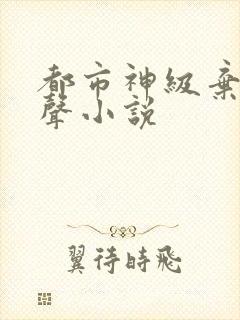 都市神級棄
聲小說
翼待時飛